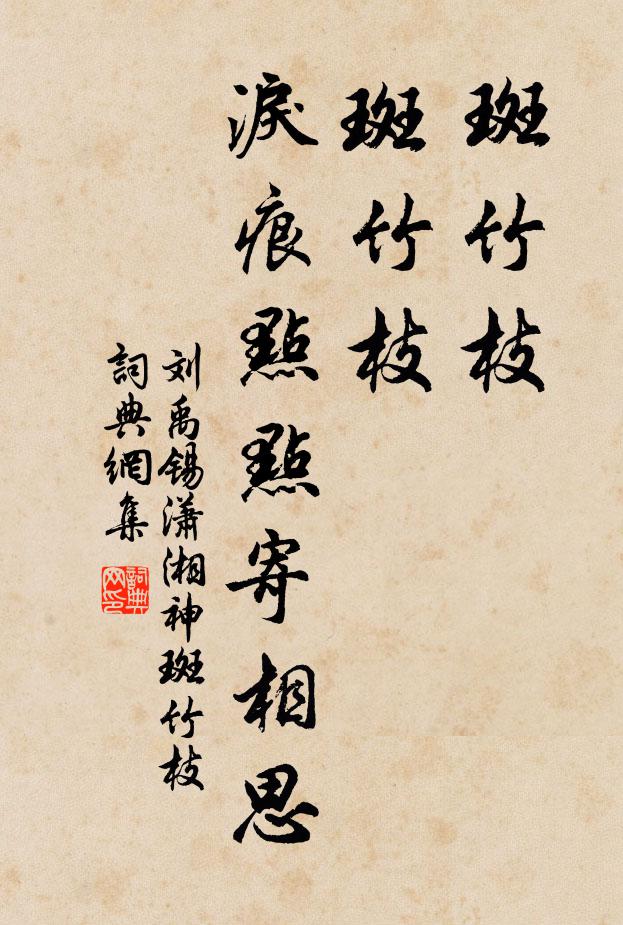 斑竹枝
斑竹枝
淚痕點點寄相思
刘禹錫瀟湘神斑竹枝
詞典網集
詞典网印